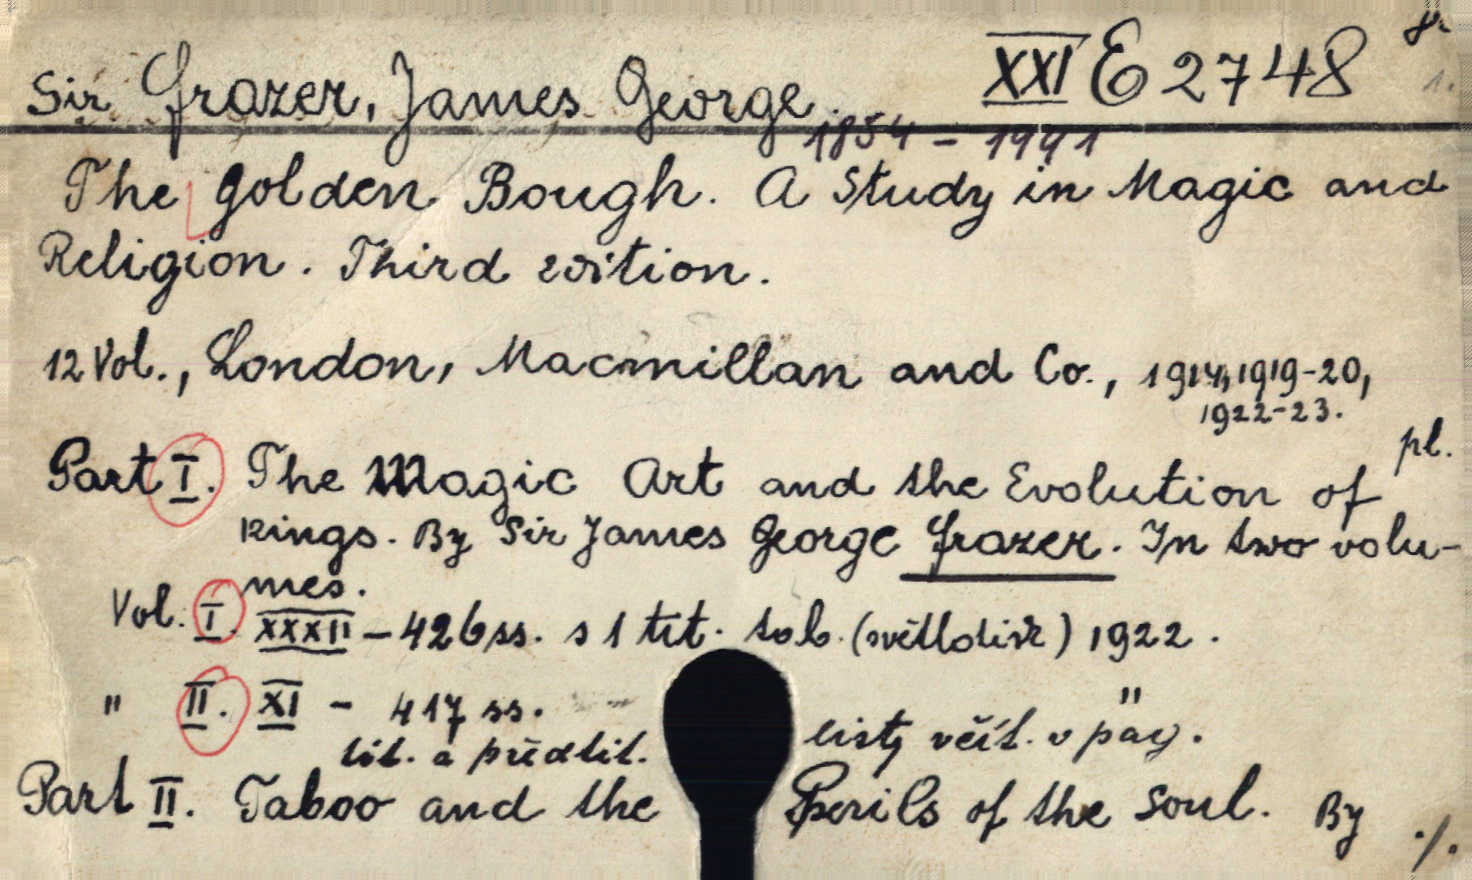 XXI E 2748 8°
1.
Sir Frazer, James George.
1854 - 1941
The Golden Bough. A Study in Magic and
Religion. Third edition.
12 Vol., London, Macmillan and Co., 1914, 1919-20,
1922-23.
pl.
Part I. The Magic Art and the Evolution of
Kings. By Sir James George Frazer. In two volu-
mes.
Vol. I. XXXII - 426 ss. s 1 tit. tab. (světlotisk) 1922.
" II. XI - 417 ss. "
tit. a předtit. listy včít. v pag.
Part II. Taboo and the Perils of the Soul. By
./.